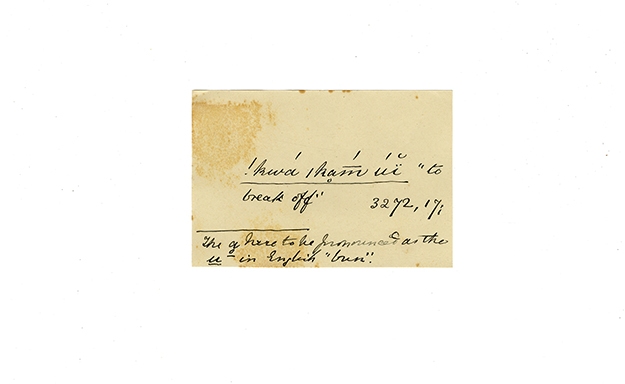 !kwá ǀkạ́m̄ úï̆ "to
break off" 3272, 17;
The ạ here to be pronounced as the
u in English "bun".